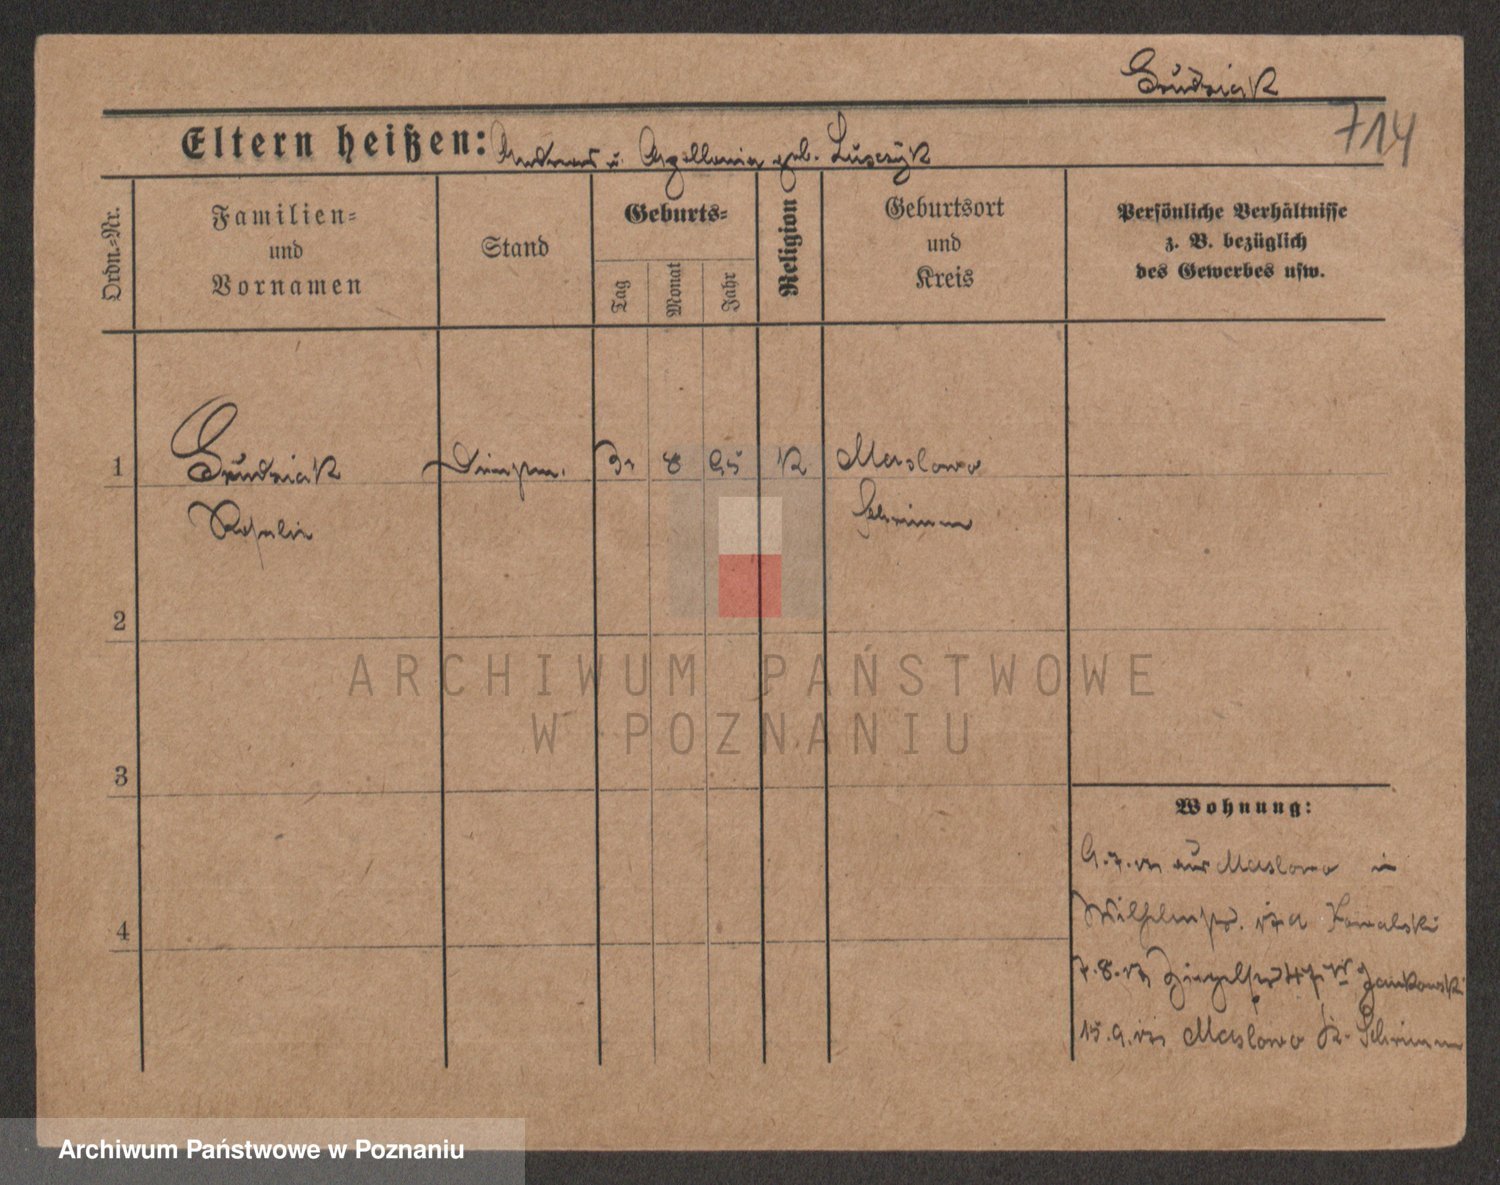 Grudziak
714
Eltern heißen: Andreas u. Apollonia geb. Luserzyk
Ordn.-Nr.
Familien-
und
Vornamen
Stand
Geburts-
Tag
Monat
Jahr
Religion
Geburtsort
und
Kreis
Persönliche Verhältnisse
z. B. bezüglich
des Gewerbes usw.
1
Grudziak
Rosalie
8
95
K
Maslowo
Schrimm
2
3
4
Wohnung:
9.7. aus Maslowo in
Wilhelmstr. Kowalski
7.8. Ziegelstr. Jankowski
15.9. Maslowo Kr. Schrimm
ARCHIWUM PAŃSTWOWE
W POZNANIU
Archiwum Państwowe w Poznaniu